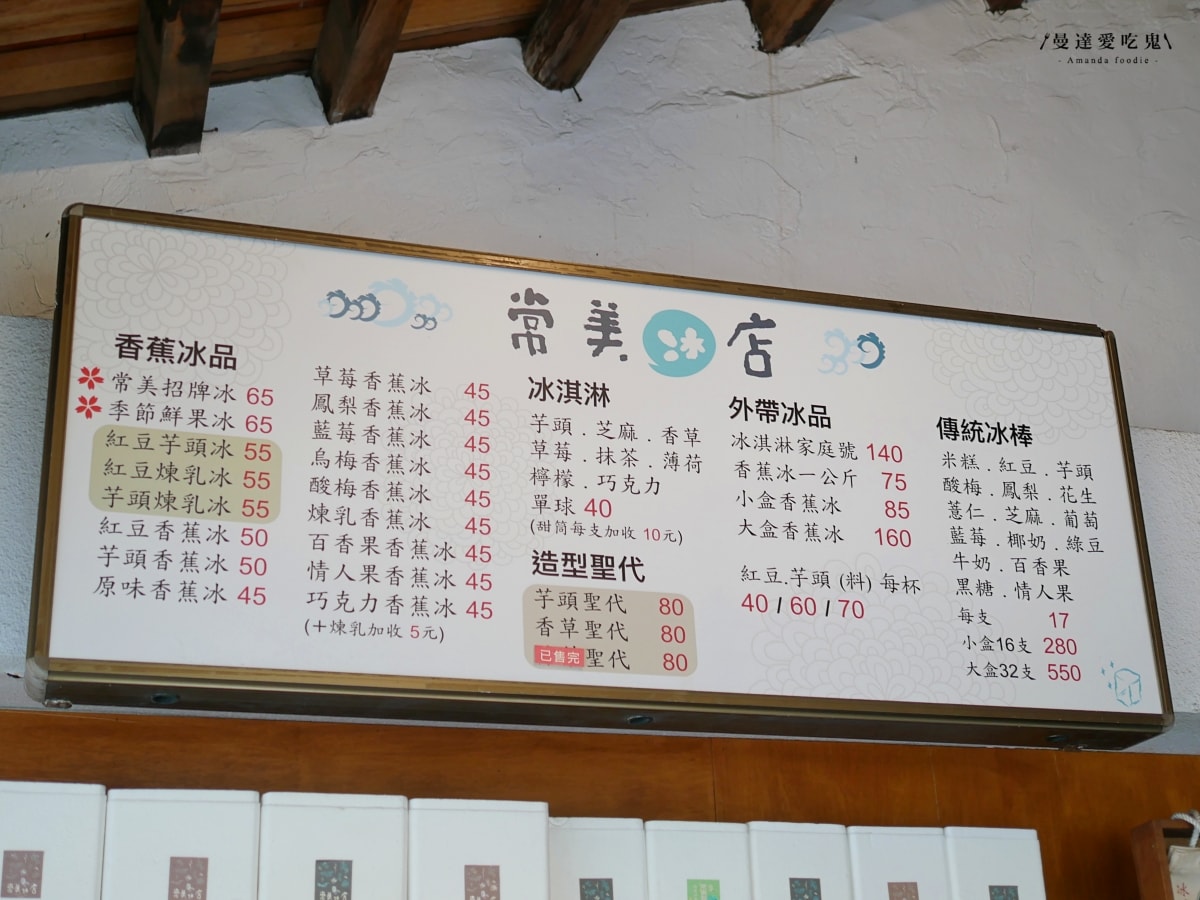 曼達愛吃鬼
- Amanda foodie -
常美冰店
香蕉冰品
常美招牌冰 65
季節鮮果冰 65
紅豆芋頭冰 55
紅豆煉乳冰 55
芋頭煉乳冰 55
紅豆香蕉冰 50
芋頭香蕉冰 50
原味香蕉冰 45
草莓香蕉冰 45
鳳梨香蕉冰 45
藍莓香蕉冰 45
烏梅香蕉冰 45
酸梅香蕉冰 45
煉乳香蕉冰 45
百香果香蕉冰 45
情人果香蕉冰 45
巧克力香蕉冰 45
(＋煉乳加收 5元)
冰淇淋
芋頭 . 芝麻 . 香草
草莓 . 抹茶 . 薄荷
檸檬 . 巧克力
單球 40
(甜筒每支加收 10元)
造型聖代
芋頭聖代 80
香草聖代 80
已售完 聖代 80
外帶冰品
冰淇淋家庭號 140
香蕉冰一公斤 75
小盒香蕉冰 85
大盒香蕉冰 160
紅豆.芋頭 (料) 每杯
40 / 60 / 70
傳統冰棒
米糕 . 紅豆 . 芋頭
酸梅 . 鳳梨 . 花生
薏仁 . 芝麻 . 葡萄
藍莓 . 椰奶 . 綠豆
牛奶 . 百香果
黑糖 . 情人果
每支 17
小盒16支 280
大盒32支 550